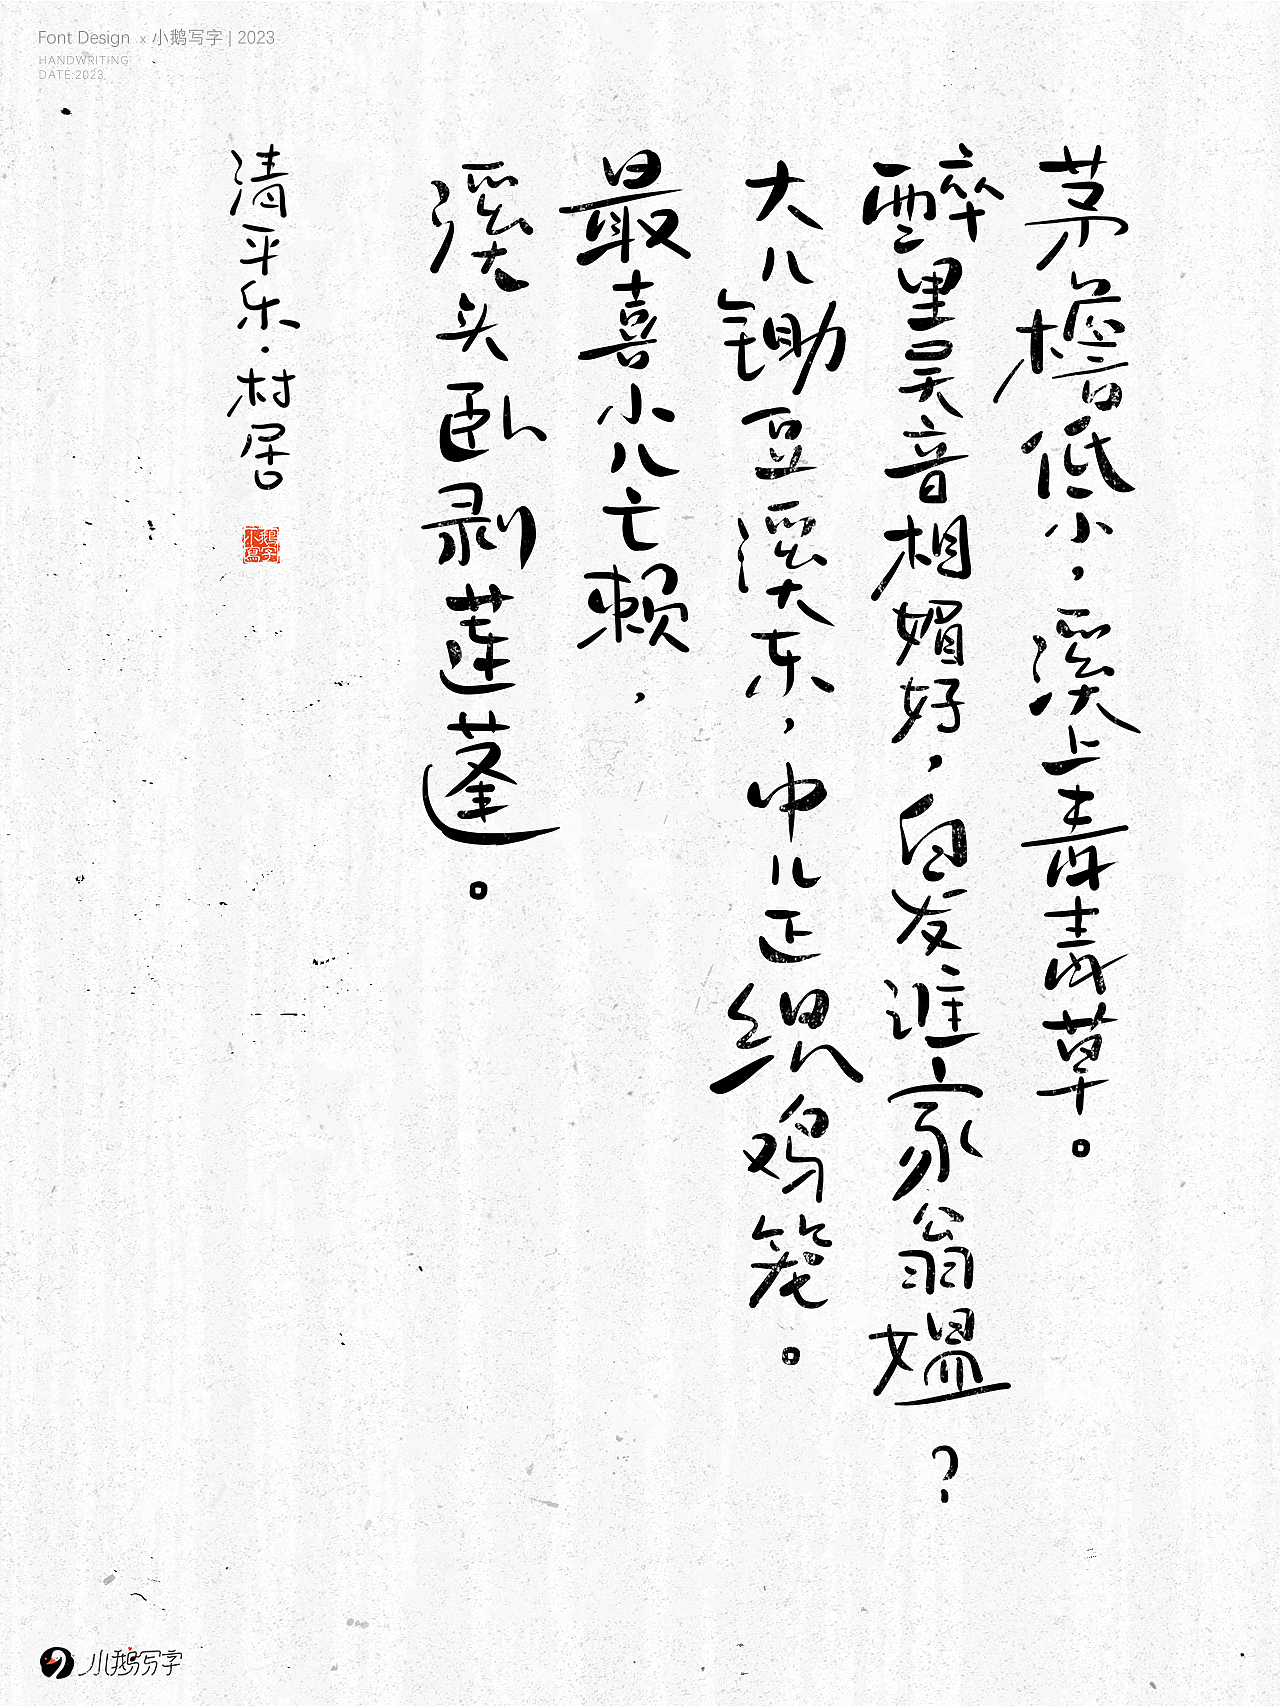 Font Design x 小鹅写字 | 2023
HANDWRITING
DATE:2023
茅檐低小，溪上青青草。
醉里吴音相媚好，白发谁家翁媪？
大儿锄豆溪东，中儿正织鸡笼。
最喜小儿亡赖，
溪头卧剥莲蓬。
清平乐·村居
小鵝寫字
小鹅写字